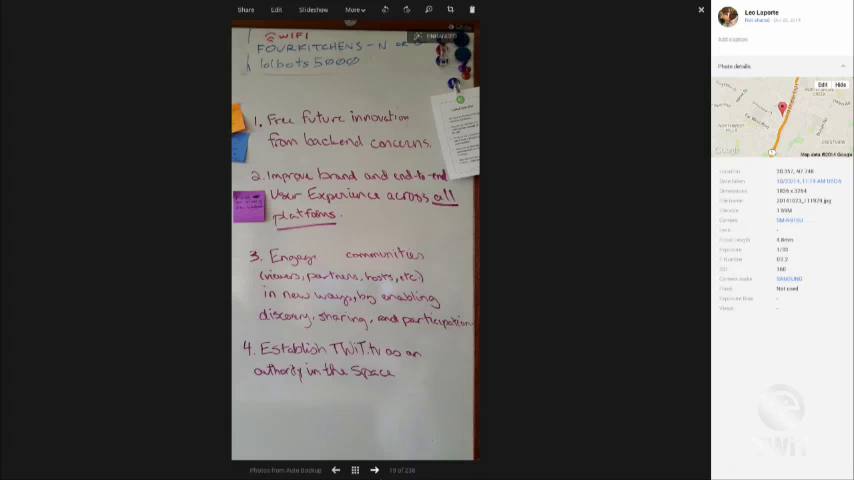 Share Edit Slideshow More
ENHANCED
WIFI
FOURKITCHENS-N or G
lolbots5000
1. Free future innovation
from backend concerns.
2. Improve brand and end-to-end
User Experience across all
platforms.
3. Engage communities
(viewers, partners, hosts, etc.)
in new ways, by enabling
discovery, sharing, and participation
4. Establish TWiT.tv as an
authority in the space
Photos from Auto Backup
19 of 236
Leo Laporte
Not shared
Add a caption
Photo details
Edit Hide
NORTHWEST
HILLS
Google
Map data ©2014 Google
Location
Date taken
Dimensions
File name
File size
Camera
Lens
Focal Length 4.8mm
Exposure
F Number
ISO
Camera make SAMSUNG
Flash Not used
Exposure Bias
Views
TWiT